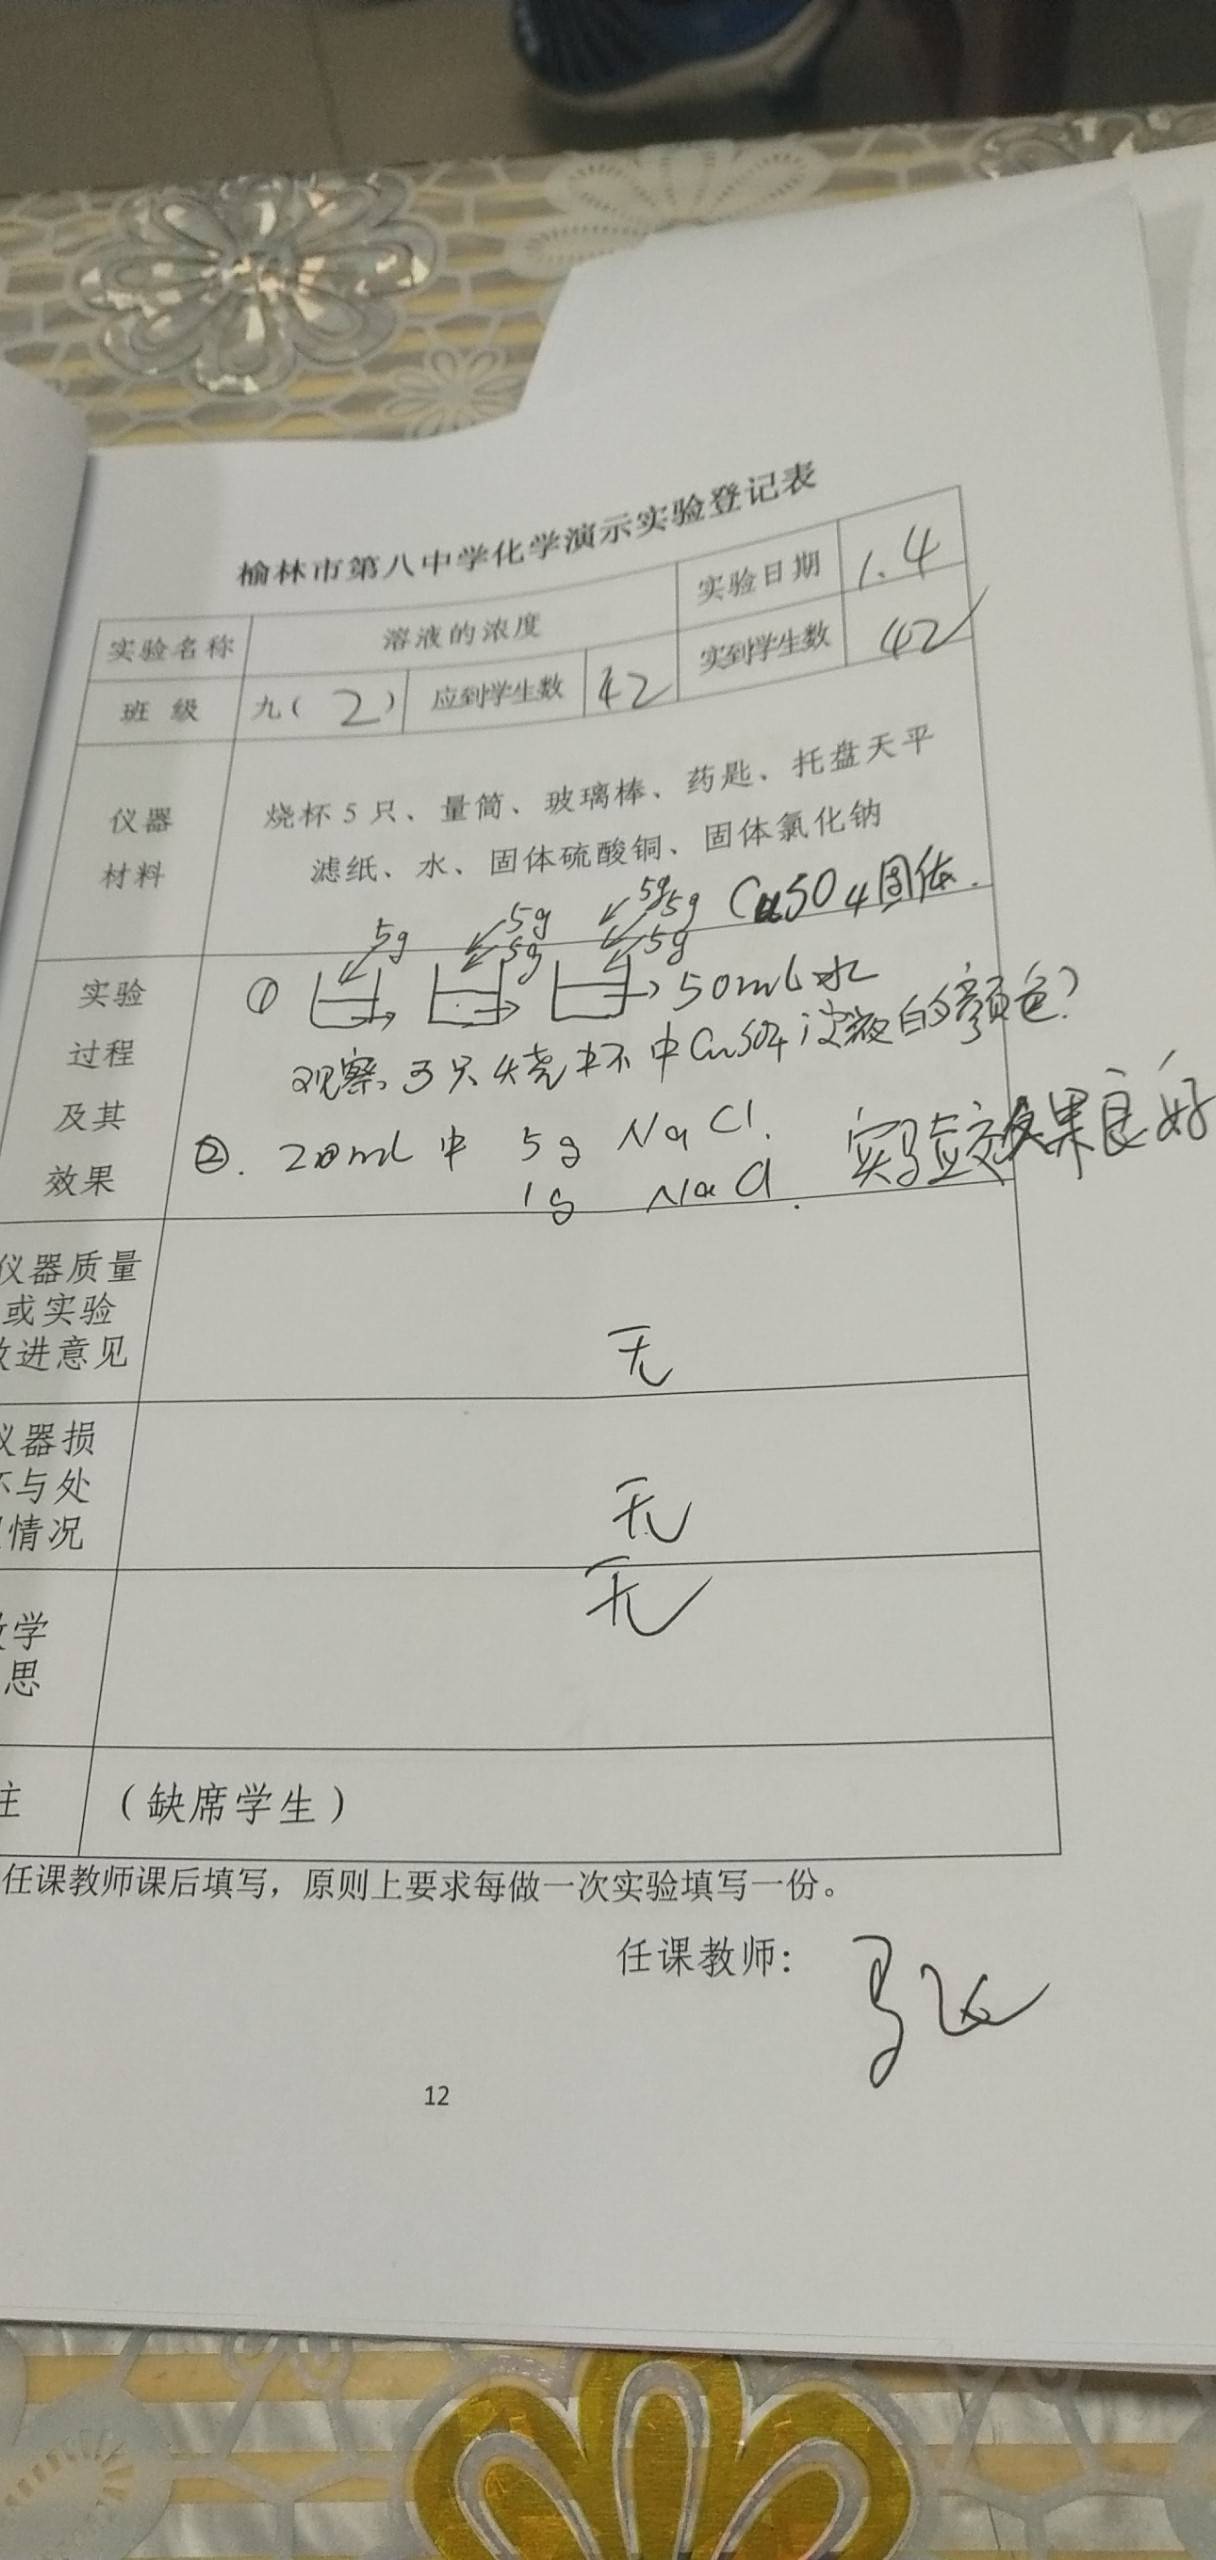 榆林市第八中学化学演示实验登记表
实验名称 溶液的浓度 实验日期 1.4
班 级 九( 2 ) 应到学生数 42 实到学生数 42
仪器
材料
烧杯5只、量筒、玻璃棒、药匙、托盘天平
滤纸、水、固体硫酸铜、固体氯化钠
实验
过程
及其
效果
5g 5g 5g 5g 5g 5g CuSO4固体.
① 50ml水
观察3只烧杯中CuSO4溶液的颜色?
②. 20ml 中 5g NaCl.
1g NaCl.
实验效果良好
仪器质量
或实验
改进意见
无
仪器损
坏与处
情况
无
学
思
无
注
(缺席学生)
任课教师课后填写，原则上要求每做一次实验填写一份。
任课教师:
12